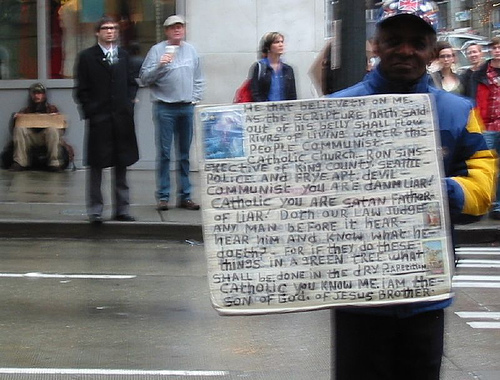 HE THAT BELIEVETH ON ME,
AS THE SCRIPTURE HATH SAID
OUT OF HIS BELLY SHALL FLOW
RIVRS OF LIVING WATER. THIS
PEOPLE COMMUNIST-
CATHOLIC CHURCH. RON SIMS
EXECTIVE OF KING COUNTY, SEATTLE-
POLICE AND PRIVE APT. DEVIL.
COMMUNISE YOU ARE DAMN LIAR!
CATHOLIC YOU ARE SATAN FATHER-
OF LIAR! DOTH OUR LAW JUDGE
ANY MAN BEFORE IT HEAR-
HEAR HIM AND KNOW WHAT HE-
DOETH? FOR IF THEY DO THESE-
THINGS IN A GREEN TREE WHAT
SHALL BE DONE IN THE DRY?
CATHOLIC YOU KNOW ME. I AM THE
SON OF GOD. OF JESUS BROTHER.